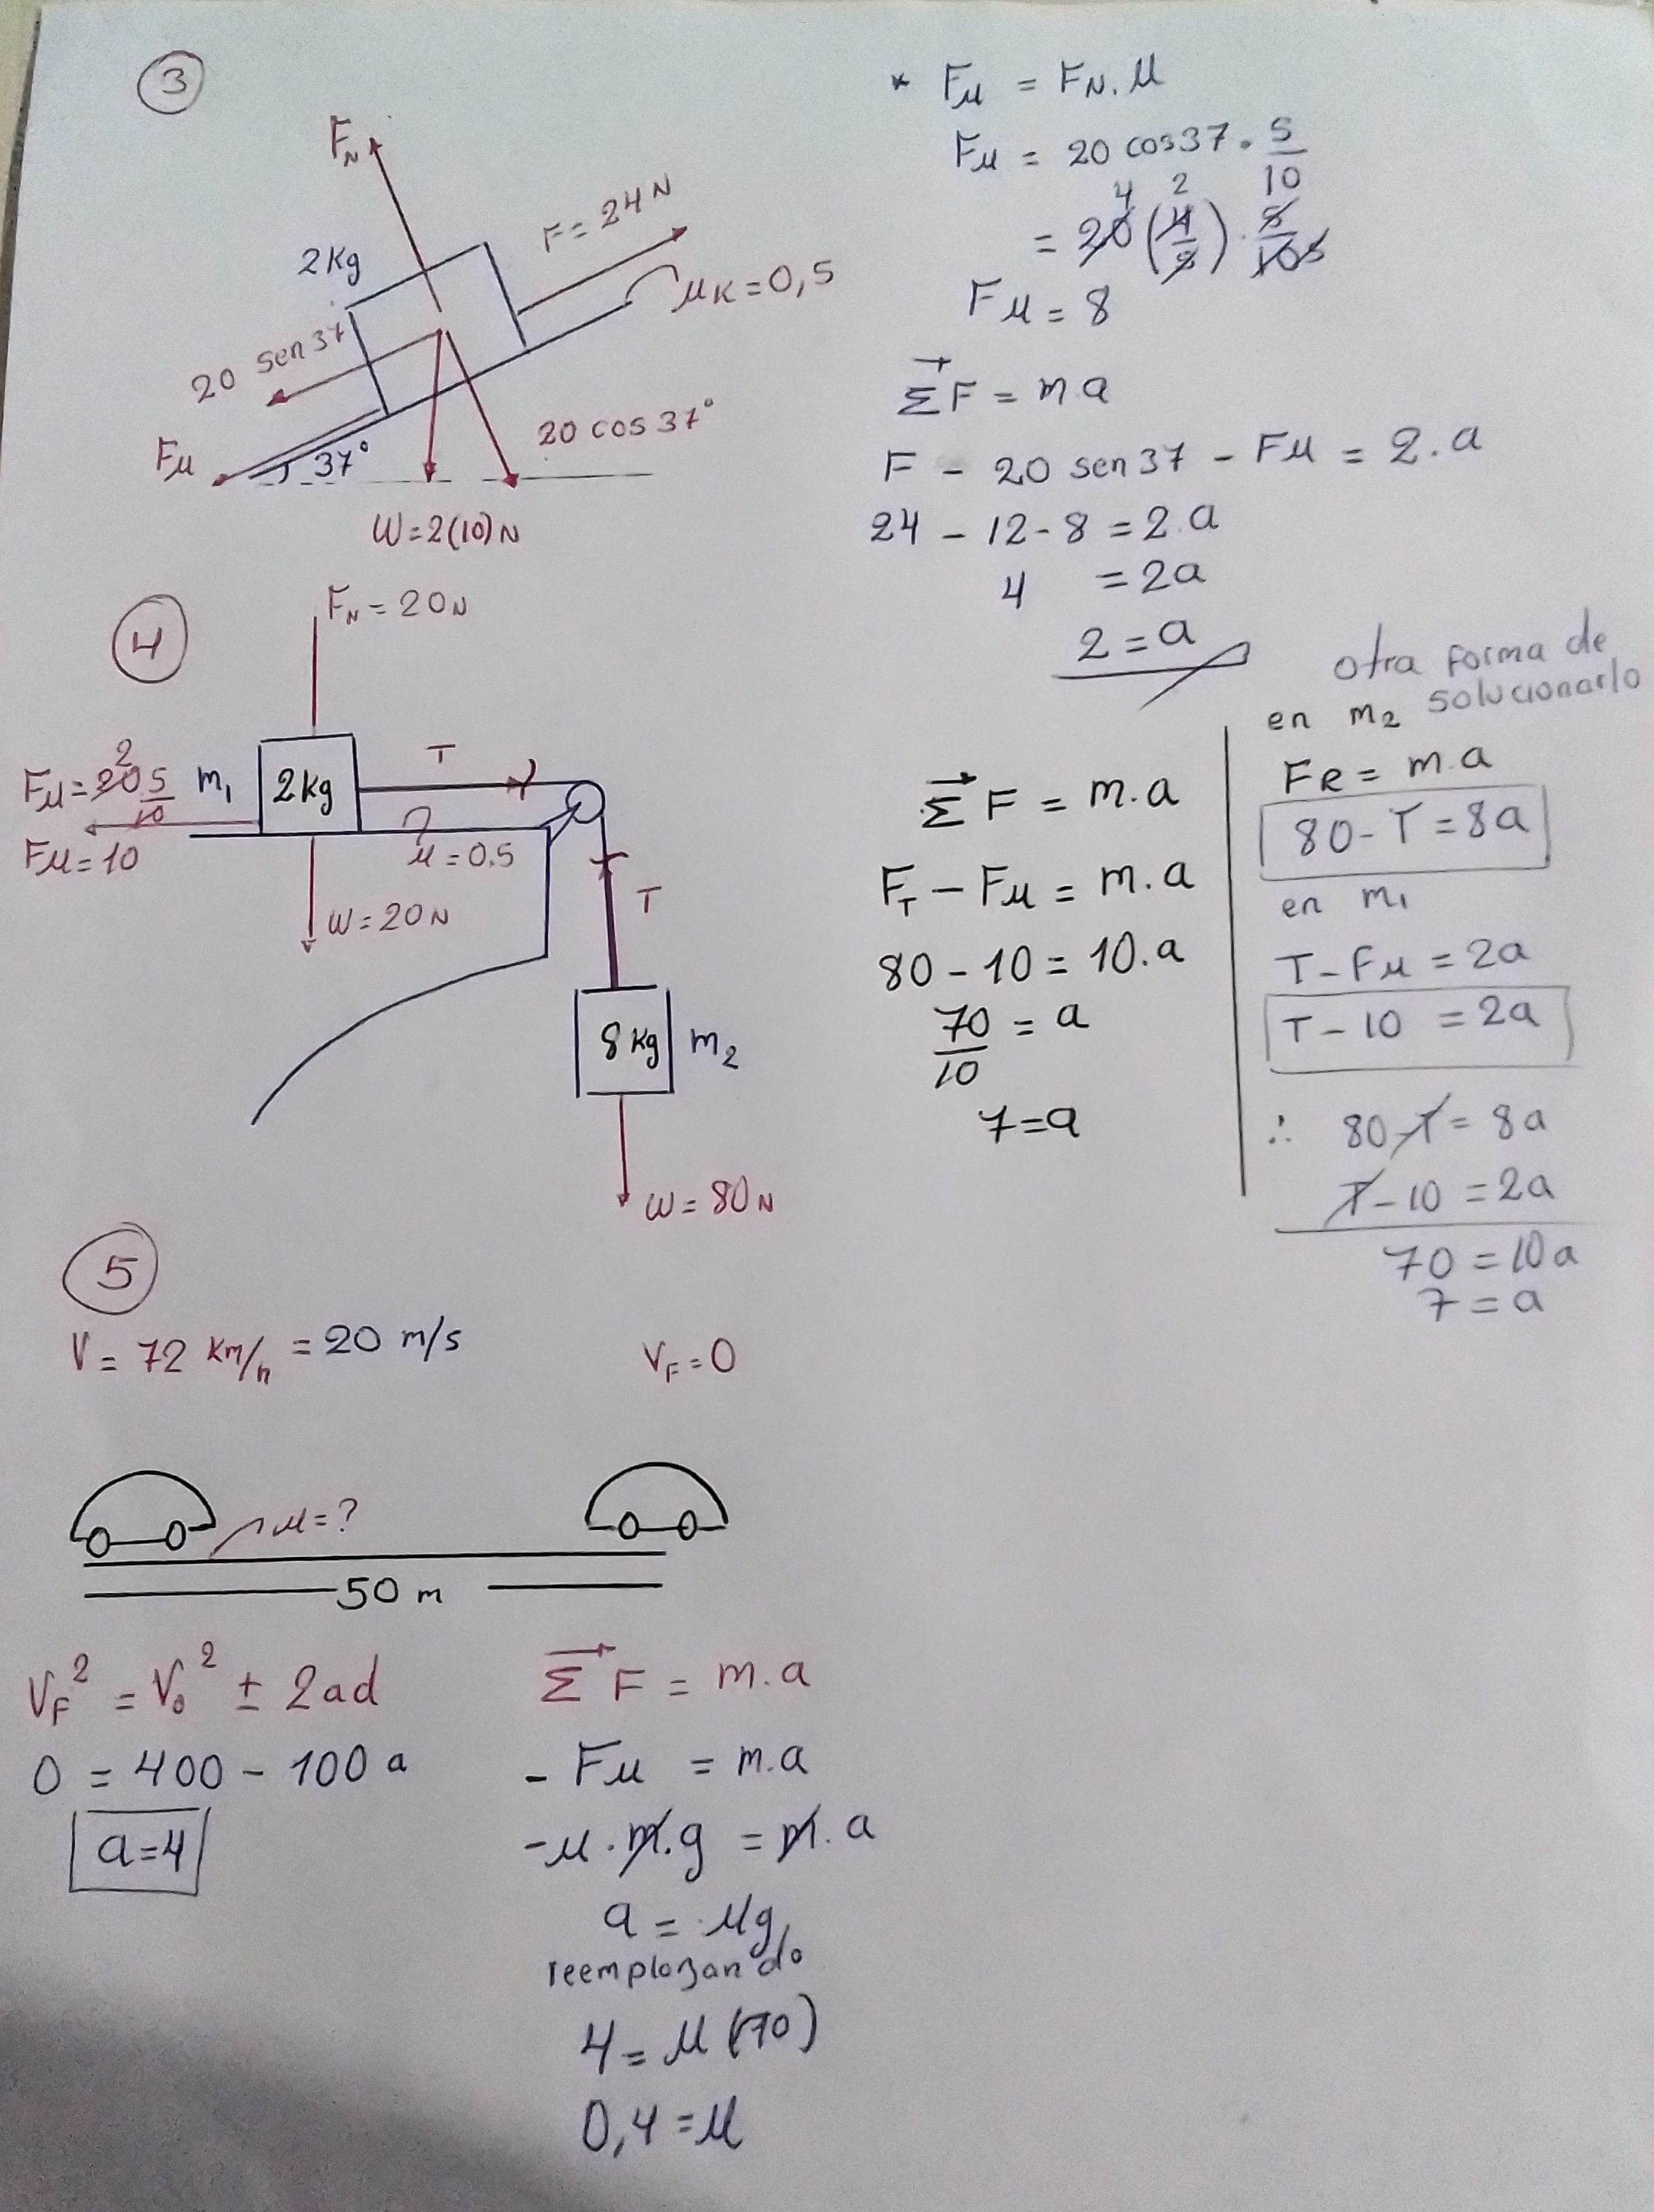 3
F_N
F = 24 N
2 Kg
μK = 0,5
20 sen 37
20 cos 37°
Fμ
37°
W = 2(10) N
* Fμ = F_N . μ
Fμ = 20 cos 37 . 5/10
4 2
= 20 (4/5) . 5/10 5
Fμ = 8
Σ F = m a
F - 20 sen 37 - Fμ = 2 . a
24 - 12 - 8 = 2 . a
4 = 2a
2 = a
4
F_N = 20 N
2
Fμ = 20 5/10
Fμ = 10
m₁
2 kg
T
μ = 0.5
W = 20 N
T
8 kg
m₂
W = 80 N
Σ F = m . a
F_T - Fμ = m . a
80 - 10 = 10 . a
70/10 = a
7 = a
otra forma de
solucionarlo
en m₂
FR = m . a
80 - T = 8a
en m₁
T - Fμ = 2a
T - 10 = 2a
∴ 80 - T = 8a
T - 10 = 2a
70 = 10a
7 = a
5
V = 72 Km/h = 20 m/s
V_F = 0
μ = ?
50 m
V_F² = V₀² ± 2ad
0 = 400 - 100 a
a = 4
Σ F = m . a
- Fμ = m . a
- μ . m . g = m . a
a = μg
reemplazando
4 = μ (10)
0,4 = μ